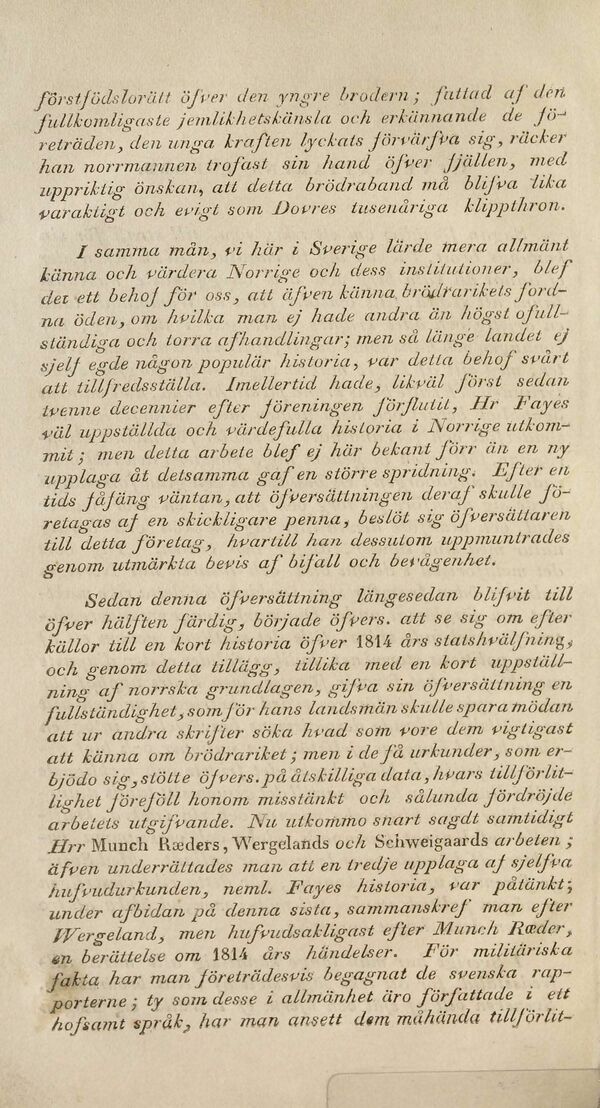 förstfödslorätt öfver den yngre brodern; fattad af den
fullkomligaste jemlikhetskänsla och erkännande de fö-
reträden, den unga kraften lyckats förvärfva sig, räcker
han norrmannen trofast sin hand öfver fjällen, med
uppriktig önskan, att detta brödraband må blifva lika
varaktigt och evigt som Dovres tusenåriga klippthron.
I samma mån, vi här i Sverige lärde mera allmänt
känna och värdera Norrige och dess institutioner, blef
det ett behof för oss, att äfven känna brödrarikets ford-
na öden, om hvilka man ej hade andra än högst ofull-
ständiga och torra afhandlingar; men så länge landet ej
sjelf egde någon populär historia, var detta behof svårt
att tillfredsställa. Imellertid hade, likväl först sedan
tvenne decennier efter föreningen förflutit, Hr Fayes
väl uppställda och värdefulla historia i Norrige utkom-
mit; men detta arbete blef ej här bekant förr än en ny
upplaga åt detsamma gaf en större spridning. Efter en
tids fåfäng väntan, att öfversättningen deraf skulle fö-
retagas af en skickligare penna, beslöt sig öfversättaren
till detta företag, hvartill han dessutom uppmuntrades
genom utmärkta bevis af bifall och bevågenhet.
Sedan denna öfversättning längesedan blifvit till
öfver hälften färdig, började öfvers. att se sig om efter
källor till en kort historia öfver 1814 års statshvälfning,
och genom detta tillägg, tillika med en kort uppställ-
ning af norrska grundlagen, gifva sin öfversättning en
fullständighet, som för hans landsmän skulle spara mödan
att ur andra skrifter söka hvad som vore dem vigtigast
att känna om brödrariket; men i de få urkunder, som er-
bjödo sig, stötte öfvers. på åtskilliga data, hvars tillförlit-
lighet föreföll honom misstänkt och sålunda fördröjde
arbetets utgifvande. Nu utkommo snart sagdt samtidigt
Hrr Munch Ræders, Wergelands och Schweigaards arbeten;
äfven underrättades man att en tredje upplaga af sjelfva
hufvudurkunden, neml. Fayes historia, var påtänkt;
under afbidan på denna sista, sammanskref man efter
Wergeland, men hufvudsakligast efter Munch Ræder,
en berättelse om 1814 års händelser. För militäriska
fakta har man företrädesvis begagnat de svenska rap-
porterne; ty som desse i allmänhet äro författade i ett
hofsamt språk, har man ansett dem måhända tillförlit-